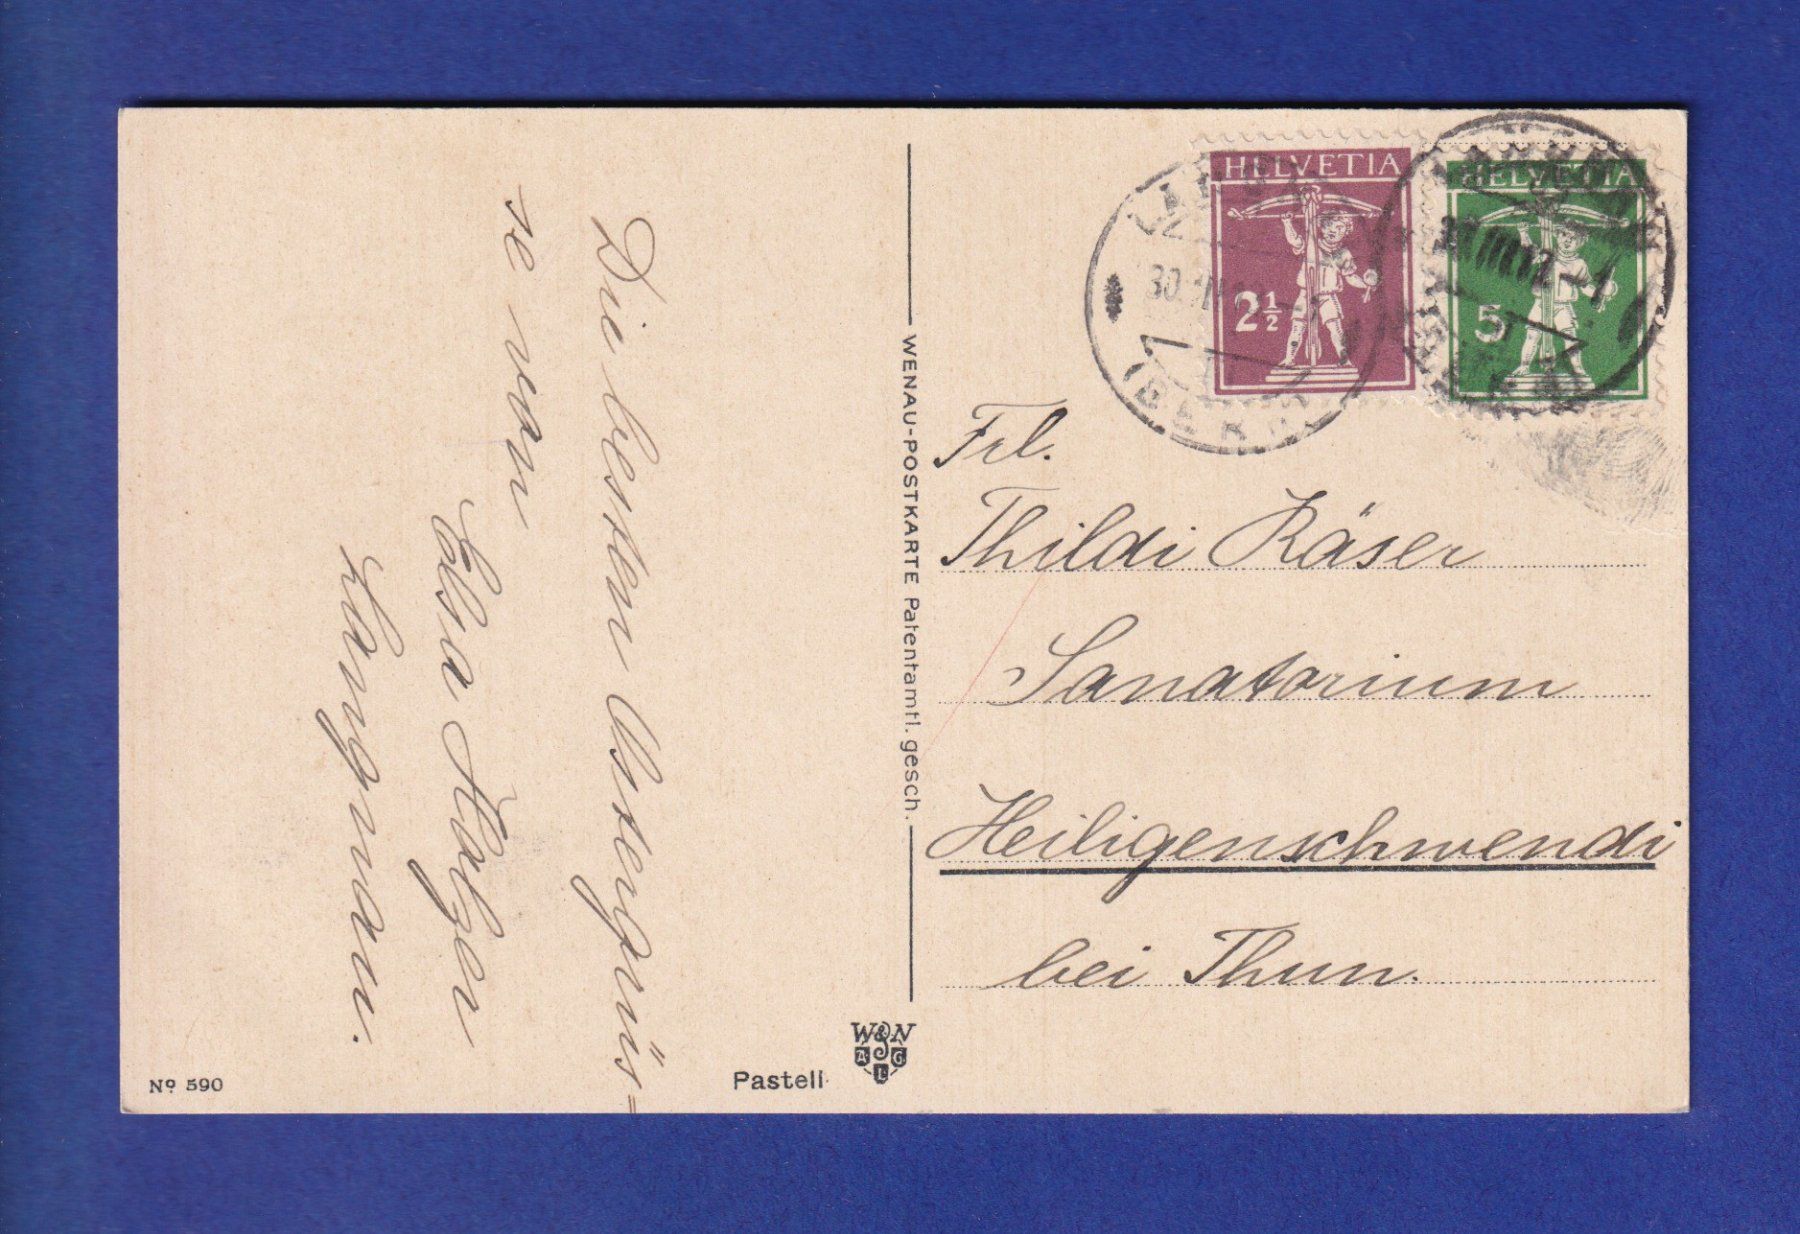 Die besten Ostergrüs=
se von
Elsa Holzer
Langnau.
WENAU-POSTKARTE Patentamtl. gesch.
HELVETIA
2½
HELVETIA
5
(BERN)
Frl.
Thildi Käser
Sanatorium
Heiligenschwendi
bei Thun.
Nº 590
Pastell
W&N
A.
G.
L